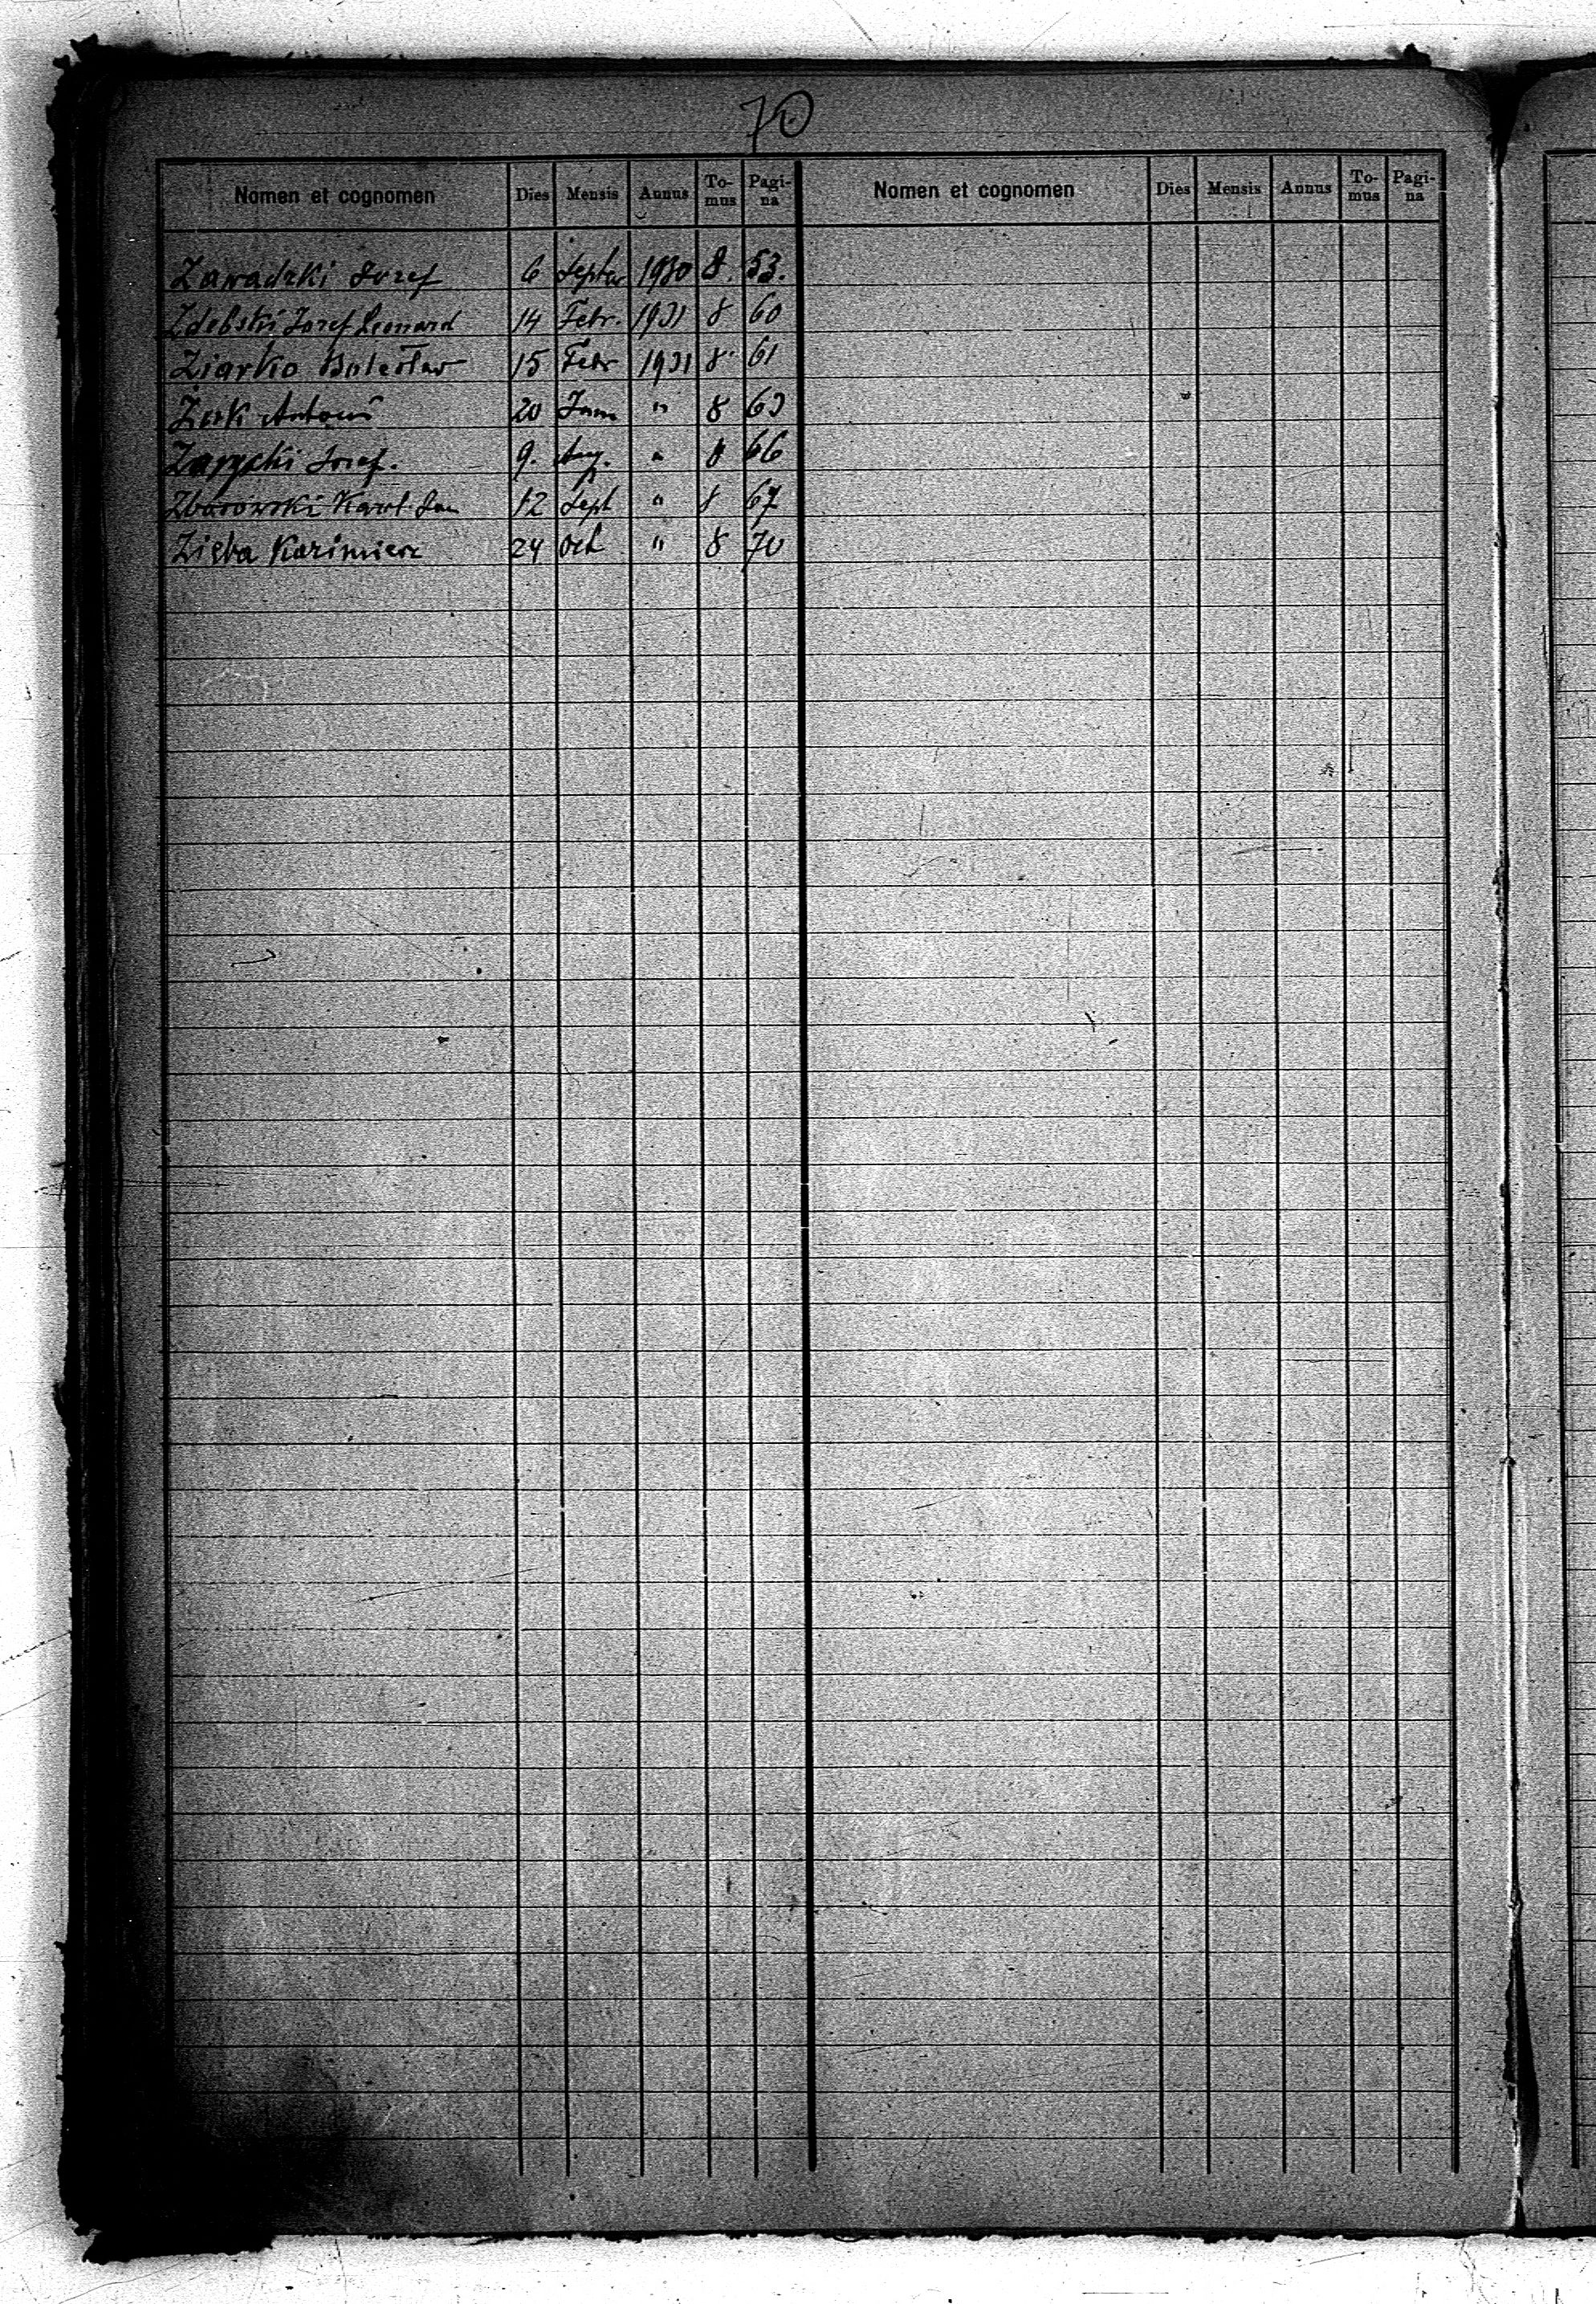 70
Nomen et cognomen Dies Mensis Annus To-mus Pagi-na Nomen et cognomen Dies Mensis Annus To-mus Pagi-na
Zawadzki Jozef 6 Septem 1930 8. 53.
Zdebski Jozef Leonard 14 Febr. 1931 8 60
Ziarko Bolesław 15 Febr 1931 8 61
Antoni 20 " 8 63
Zarycki Jozef. 9. Aug. " 8 66
Zborowski Karol Jan 12 Sept " 8 67
Zięba Kazimierz 24 Oct " 8 70